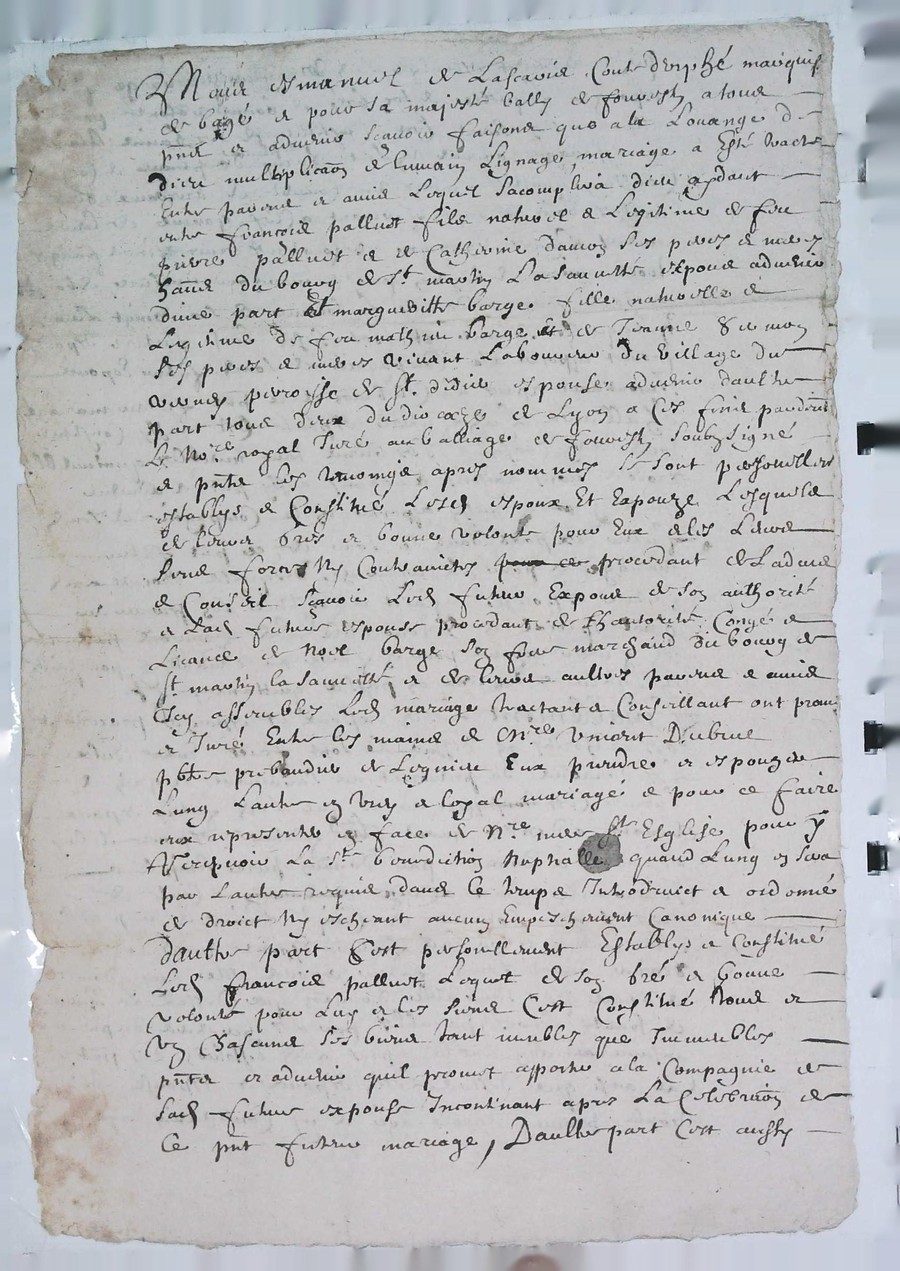 Nous Emanuel de Lascaris Conte Durphé marquis
de bagé et pour sa majesté bally de fourestz a tous
pnts et advenir scavoir faisons que a la Louange de
dieu multiplicaon de lhumain Lignage mariage a Esté traicté
Entre parens et amis Lequel sacomplira dieu aydant
entre francois palluet filz naturel et Legitime de feu
pierre palluet et de Catherine damon ses pere et mere
du bourg de St martin La sauveté espoux advenir
dune part Et margueritte barge fille naturelle et
Legitime de feu mathieu barge et de Jeanne
ses pere et mere vivant Laboureur du village du
verney perroisse de St didier espouse advenir daultre
part tous deux du dioceze de Lyon a ces fins pardevant
Le Nore royal Juré au balliage de fourestz soubzsigné
et pnts les tesmoings apres nommes se sont personnellement
establys et Constitué Lesd espoux Et Expouze Lesquels
de leurs bres et bonne volonté pour Eux et les Leurs
sans force Ny Contrainctes procedant de Ladvis
et Conseil scavoir Led futur Expoux de son authorité
et Lad future espouse procedant de Lhautorité Congé et
Licance de Noel barge son frere marchand du bourg de
St martin la sauvetté et de leurs aultres parens et amis
Icy assembles Led mariage traictant et Conseillant ont promis
et Juré Entre les mains de Mre vincent Dubrue
pbtre prebandier de Eux prendre et espouzer
Lung Lautre en vray et loyal mariage et pour ce faire
eux representer en face de Nre mere Ste Esglise pour y
Recepvoir La Ste benediction Nuptialle quand Lung en sera
par Lautre requis dans le temps Introduict et ordonné
de droict Ny escheant aucun Empeschement Canonique
Daultre part Cest personellement Establys et Constitué
Led francois palluet Lequel de son bré et bonne
volonté pour Luy et les siens Cest Constitué tous et
Un Chascuns ses biens tant meubles que Immeubles
pnts et advenir quil promet apporter a la Compagnie de
sad future expouse Incontinant apres La Celebraon de
Ce pnt futur mariage, Daultre part Cest aussy